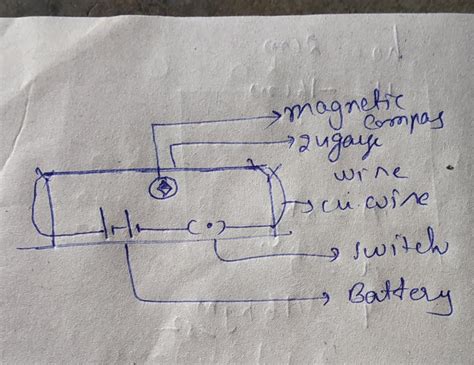 magnetic
compas
wire
cu. wire
switch
Battery